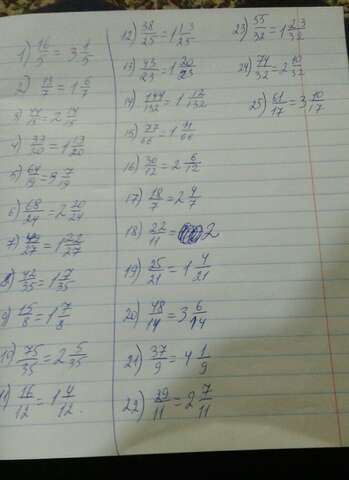 1) 16/5 = 3 1/5
2) 13/7 = 1 6/7
4) 33/20 = 1 13/20
5) 64/19 = 3 7/19
6) 68/24 = 2 20/24
7) 49/27 = 1 22/27
8) 42/35 = 1 7/35
9) 15/8 = 1 7/8
10) 75/35 = 2 5/35
11) 16/12 = 1 4/12.
12) 38/25 = 1 13/25
13) 43/23 = 1 20/23
14) 144/132 = 1 12/132
15) 77/66 = 1 11/66
16) 30/12 = 2 6/12
17) 18/7 = 2 4/7
18) 22/11 = 2
19) 25/21 = 1 4/21
20) 48/14 = 3 6/14
21) 37/9 = 4 1/9
22) 29/11 = 2 7/11
23) 55/32 = 1 23/32
24) 74/32 = 2 10/32
25) 61/17 = 3 10/17